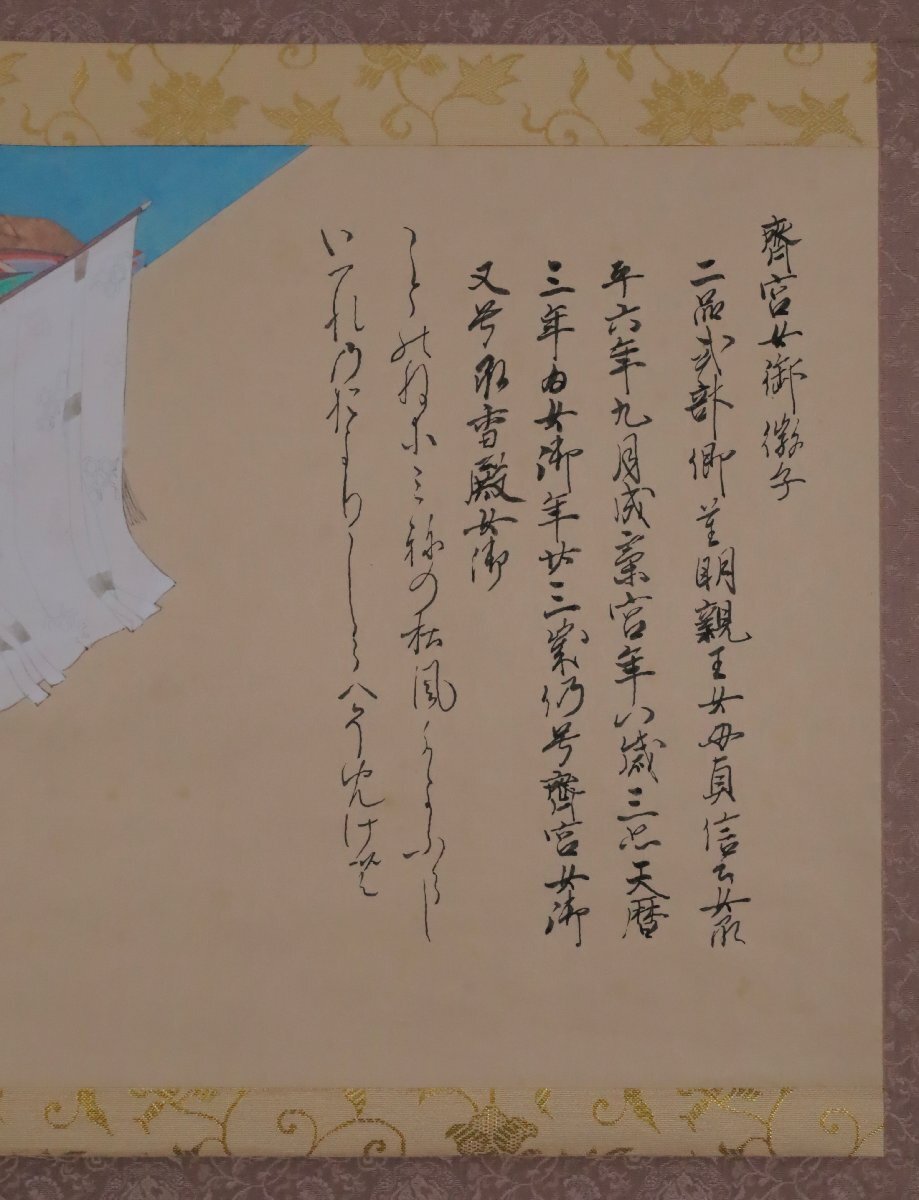 齊宮女御徽子
二品式部卿重明親王女母貞信公女承
平六年九月成齊宮年八歳三品天暦
三年為女御年廿三歳仍号齊宮女御
又号承香殿女御
ことのねにみねの松風かよふらし
いつれのおよりしらへそめけむ